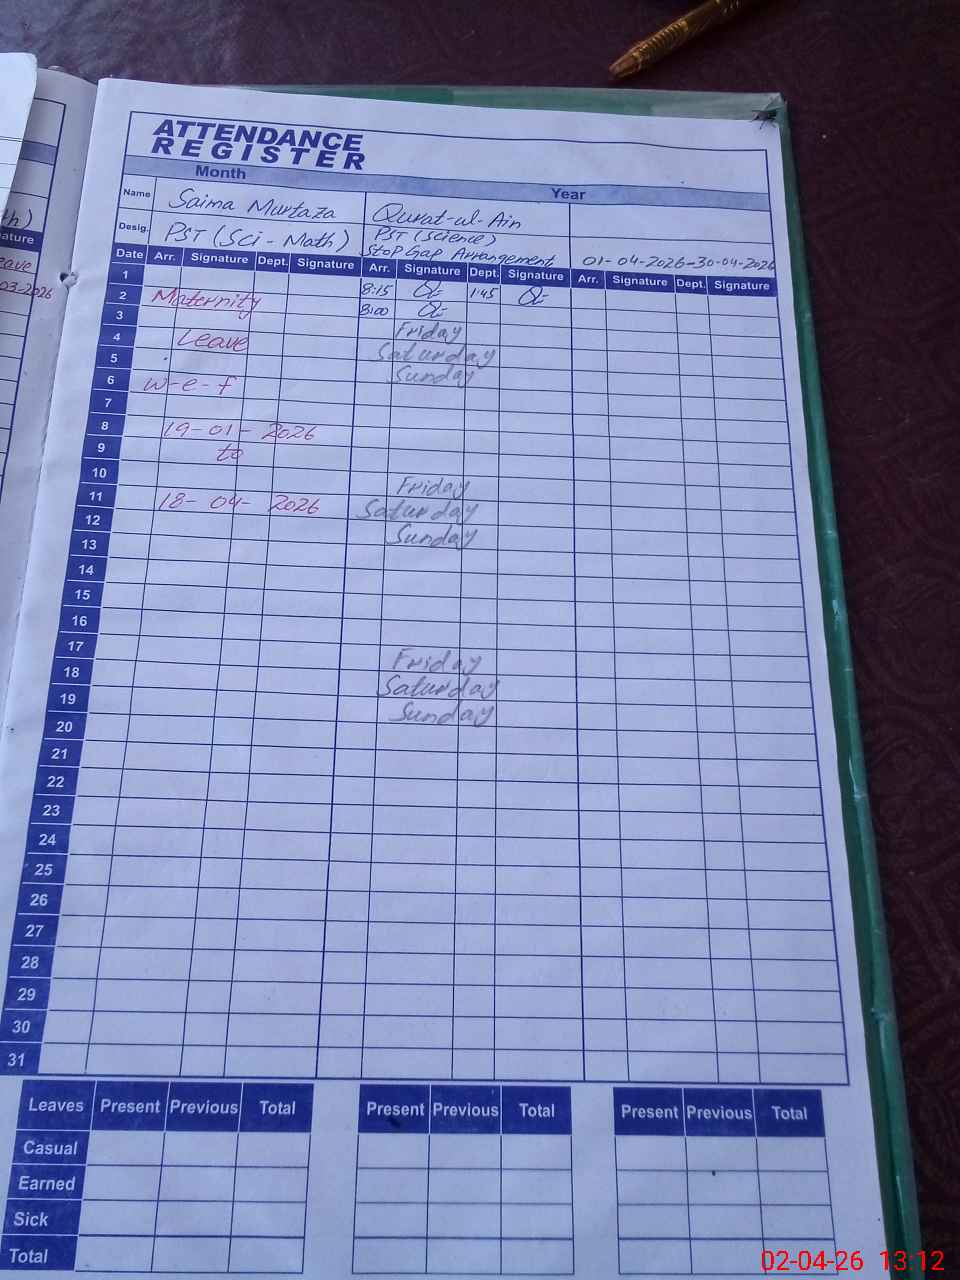 th)
ature
eave
03-2026
ATTENDANCE
REGISTER
Month Year
Name Saima Murtaza Qurat-ul-Ain
Desig. PST (Sci - Math) PST (Science)
Stop Gap Arrangement 01-04-2026-30-04-2026
Date Arr. Signature Dept. Signature Arr. Signature Dept. Signature Arr. Signature Dept. Signature
1 8:15 1:45
2 Maternity 8:00
3 Friday
4 Leave Saturday
5 Sunday
6 w-e-f
7
8 19-01-2026
9 to
10 Friday
11 18-04-2026 Saturday
12 Sunday
13
14
15
16
17 Friday
18 Saturday
19 Sunday
20
21
22
23
24
25
26
27
28
29
30
31
Leaves Present Previous Total Present Previous Total Present Previous Total
Casual
Earned
Sick
Total
02-04-26 13:12